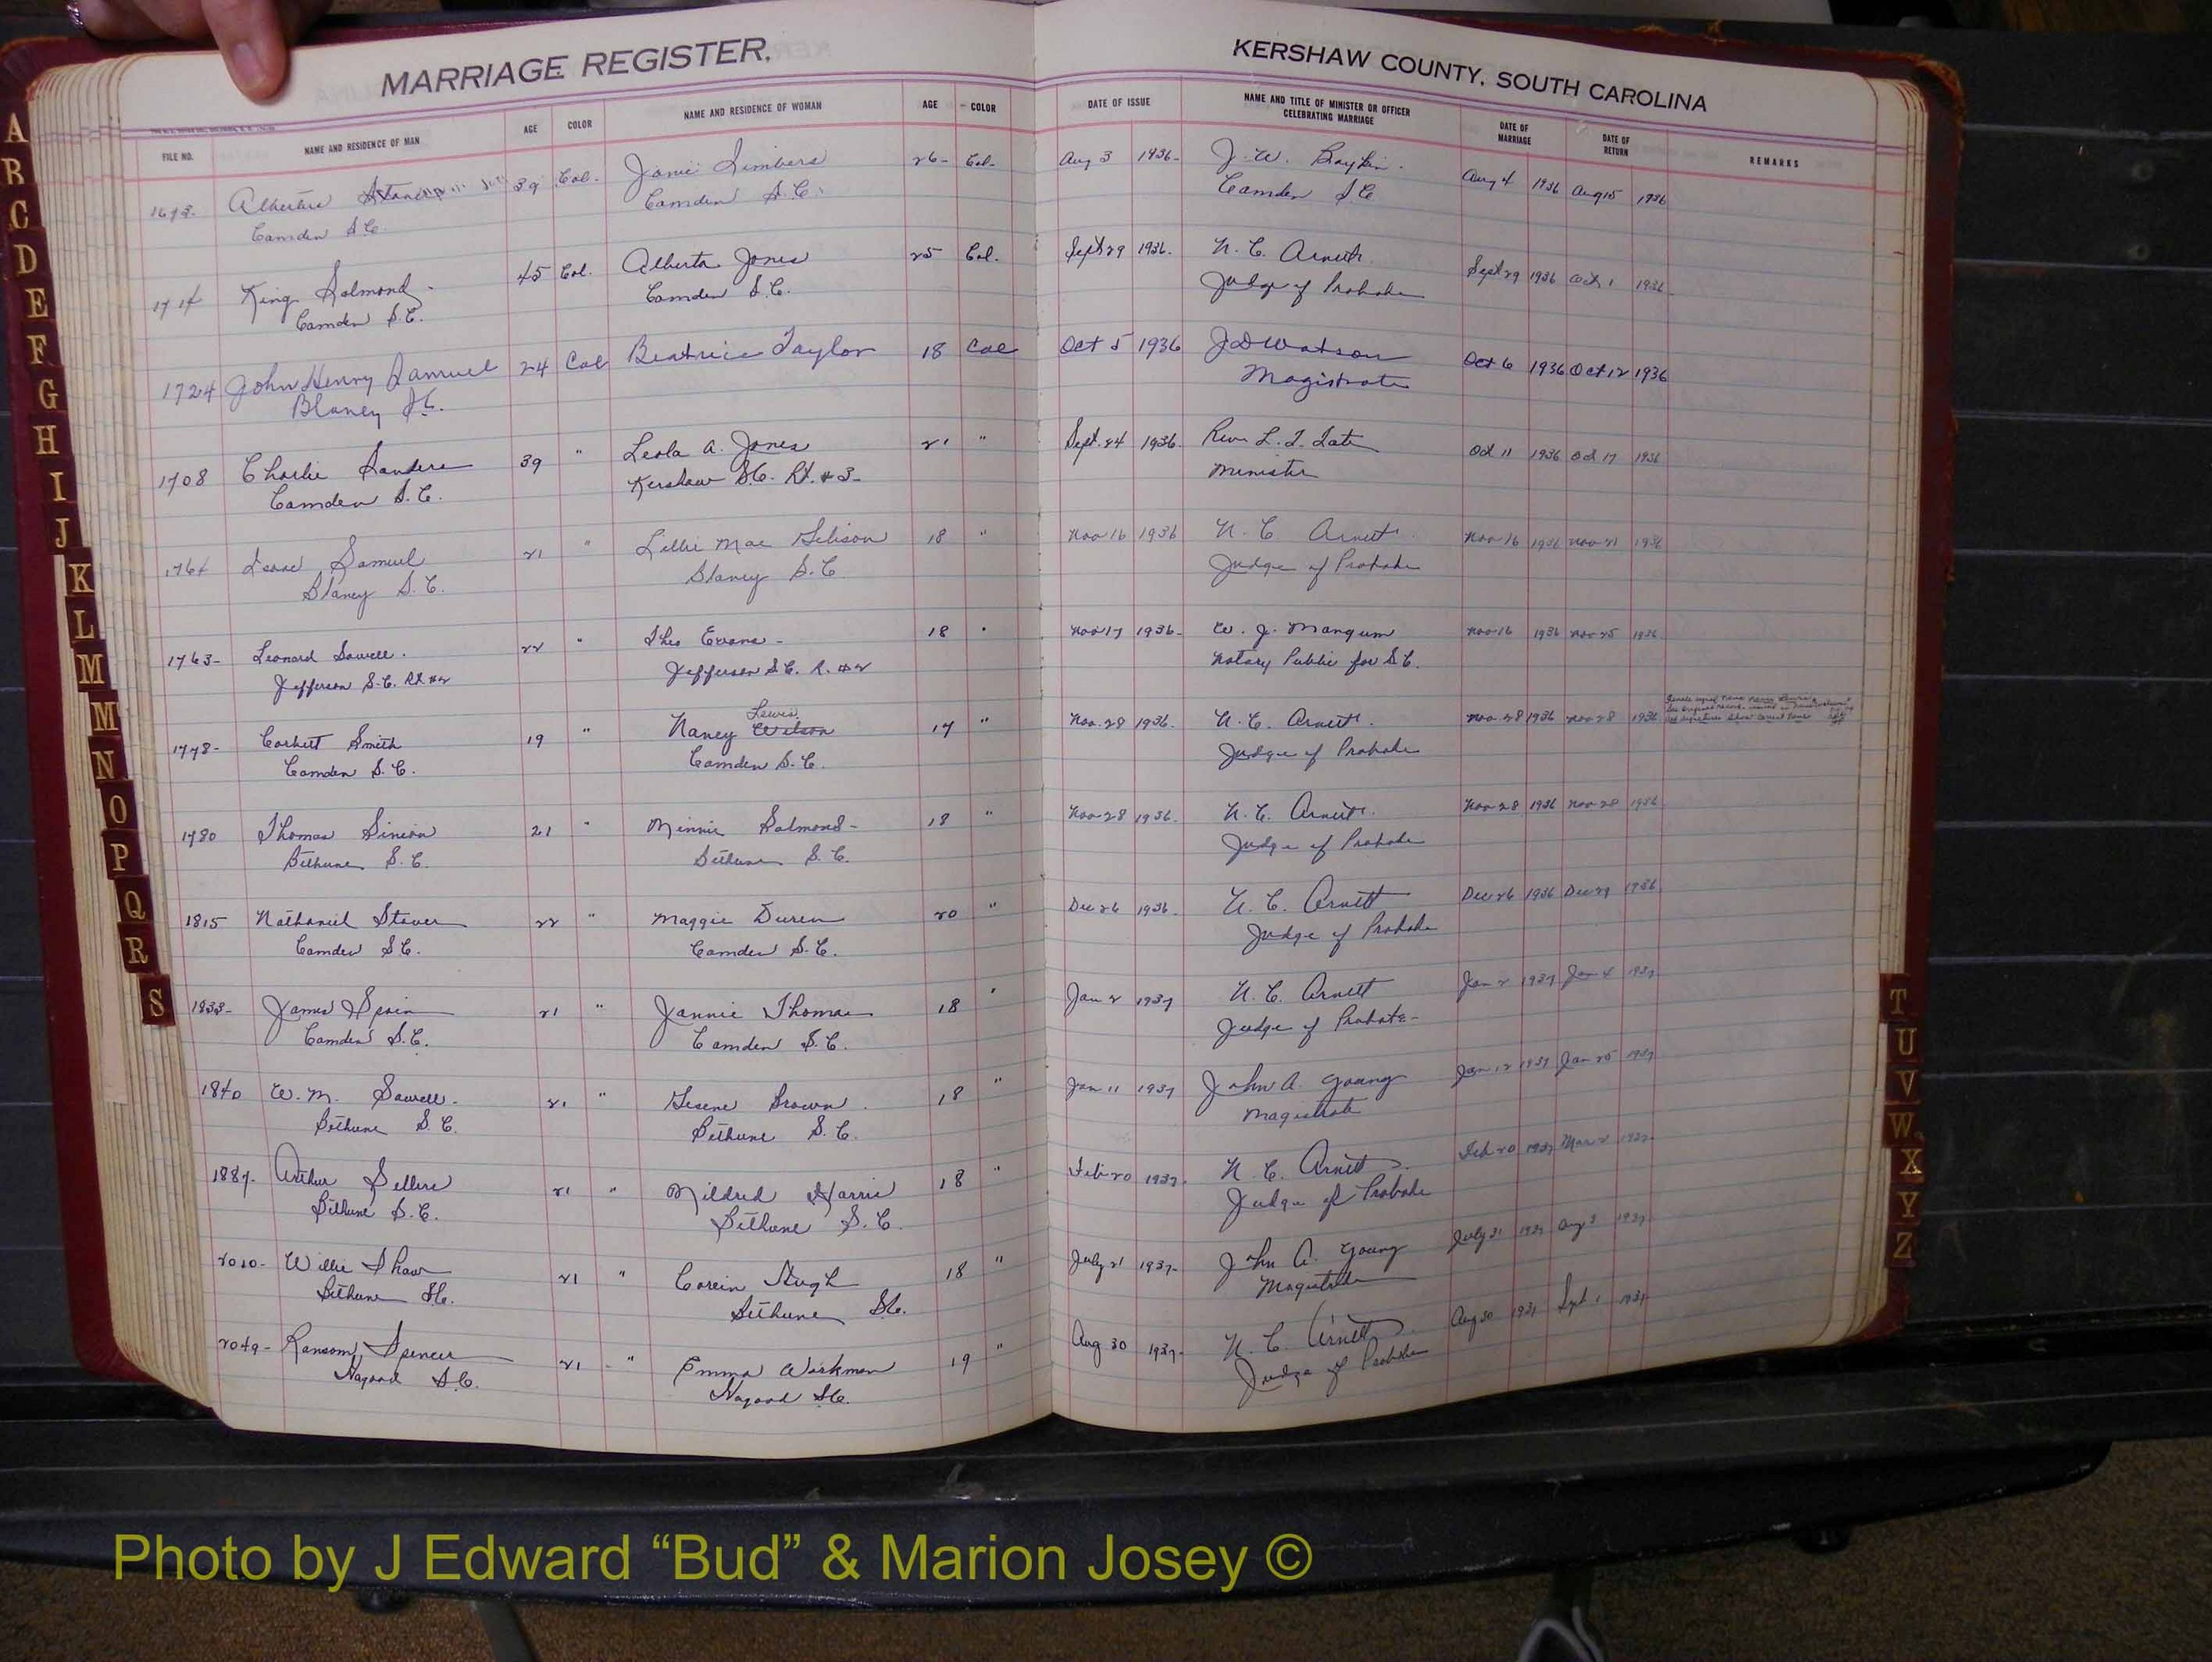 MARRIAGE REGISTER.
KERSHAW COUNTY, SOUTH CAROLINA
FILE NO. NAME AND RESIDENCE OF MAN AGE COLOR NAME AND RESIDENCE OF WOMAN AGE COLOR DATE OF ISSUE NAME AND TITLE OF MINISTER OR OFFICER CELEBRATING MARRIAGE DATE OF MARRIAGE DATE OF RETURN REMARKS
1693- 39 Col. Janie 26- Col- Aug 3 1936- J. W. Boykin. Aug 4 1936 Aug 15 1936
Camden S.C. Camden S.C. Camden S.C
1714 King Salmond 45 Col. Alberta Jones 25 Col. Sept 29 1936. N. C. Arnett Sept 29 1936 Oct 1 1936
Camden S.C. Camden S.C. Judge of Probate
1724 John Henry Samuel 24 Col Beatrice Taylor 18 Col Oct 5 1936 J D Watson Oct 6 1936 Oct 12 1936
Blaney S.C. Magistrate
1708 Charlie Sanders 39 " Leola A. Jones 21 " Sept. 24 1936. Rev L. T. Oct 11 1936 Oct 17 1936
Camden S.C. Kershaw S.C. Rt. #3- Minister
1764 Isaac Samuel 21 " Lillie Mae Gibson 18 " Nov 16 1936 N. C Arnett Nov 16 1936 Nov 21 1936
Blaney S.C. Blaney S.C Judge of Probate
1763- Leonard Sowell. 22 " Evans - 18 " Nov 17 1936- W. J. Mangum Nov 16 1936 Nov 25 1936
Jefferson S.C. Rt #2 Jefferson S.C. R. #2 Notary Public for S.C.
1778- Corbett Smith 19 " Nancy Wilson Lewis 17 " Nov. 28 1936. N. C. Arnett. Nov. 28 1936 Nov 28 1936
Camden S.C. Camden S.C. Judge of Probate
1780 Thomas 21 " Minnie Salmond- 18 " Nov 28 1936. N. C. Arnett. Nov 28 1936 Nov 28 1936
Bethune S.C. Bethune S.C. Judge of Probate
1815 Nathaniel Stover 22 " Maggie Duren 20 " Dec 26 1936. N. C. Arnett Dec 26 1936 Dec 29 1936
Camden S.C. Camden S.C. Judge of Probate
1833- James 21 " Jannie Thomas 18 " Jan 2 1937 N. C. Arnett Jan 2 1937 Jan 4 1937
Camden S.C. Camden S.C. Judge of Probate-
1840 W. M. Sowell- 21 " Brown 18 " Jan 11 1937 John A. Young Jan 12 1937 Jan 25 1937
Bethune S.C. Bethune S.C. Magistrate
1887- Arthur Sellers 21 " Mildred Harris 18 " Feb 20 1937. N. C. Arnett Feb 20 1937 Mar 2 1937
Bethune S.C. Bethune S.C. Judge of Probate
2010- Willie Shaw 21 " Corein 18 " July 21 1937- John A. Young July 31 1937 Aug 3 1937
Bethune S.C. Bethune S.C. Magistrate
2049- Ransom Spencer 21 " Emma Workman 19 " Aug 30 1937- N. C. Arnett Aug 30 1937 Sept 1 1937
Hagood S.C. Hagood S.C. Judge of Probate
A
B
C
D
E
F
G
H
I
J
K
L
M
M
N
O
P
Q
R
S
T
U
V
W.
X
Y
Z
Photo by J Edward “Bud” & Marion Josey ©